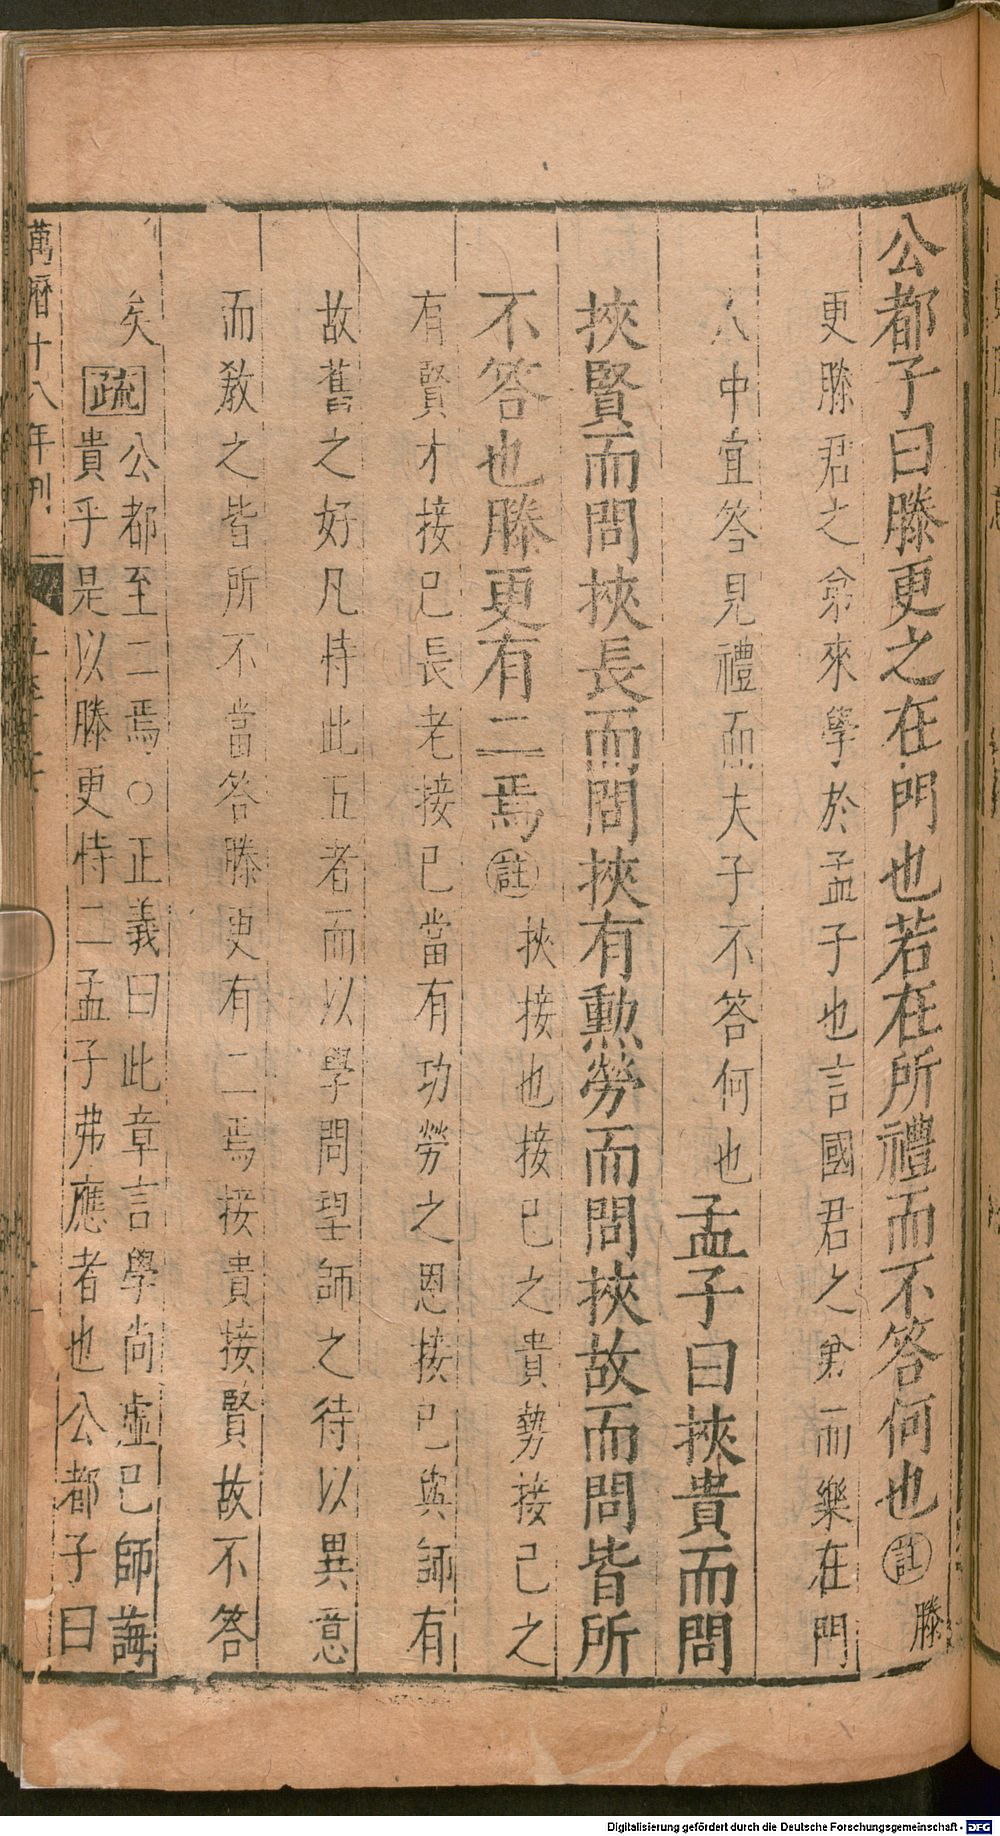 公都子曰滕更之在門也若在所禮而不答何也註滕
更滕君之弟來學於孟子也言國君之弟而樂在門
人中宜答見禮而夫子不答何也孟子曰挾貴而問
挾賢而問挾長而問挾有勲勞而問挾故而問皆所
不答也滕更有二焉註挾接也接己之貴勢接己之
有賢才接己長老接己當有功勞之恩接己與師有
故舊之好凡恃此五者而以學問望師之待以異意
而教之皆所不當答滕更有二焉接貴接賢故不答
矣
疏公都至二焉○正義曰此章言學尚虛己師誨
貴乎是以滕更恃二孟子弗應者也公都子曰
萬曆十八年刊
Digitalisierung gefördert durch die Deutsche Forschungsgemeinschaft - DFG